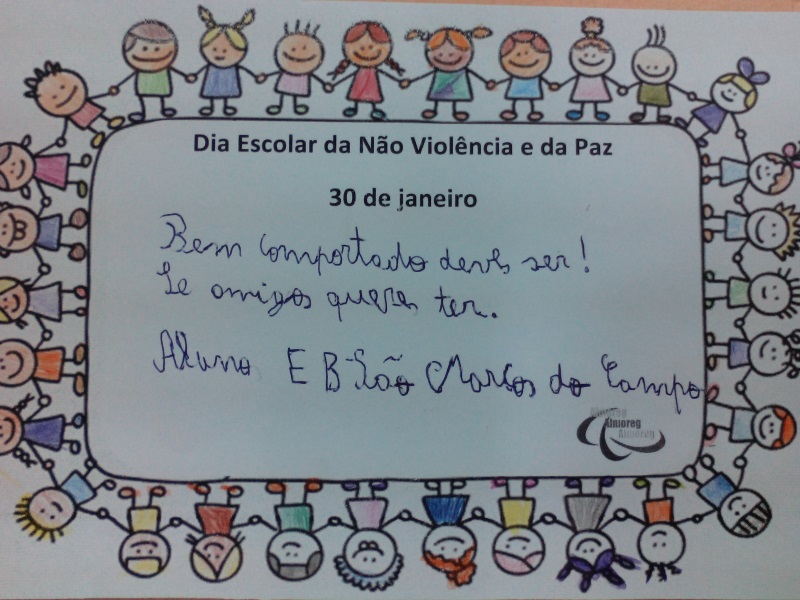 Dia Escolar da Não Violência e da Paz
30 de janeiro
Bem comportado deves ser!
Se amigos queres ter.
Aluno EB São Marcos do Campo
Almoreg
Almoreg
Almoreg